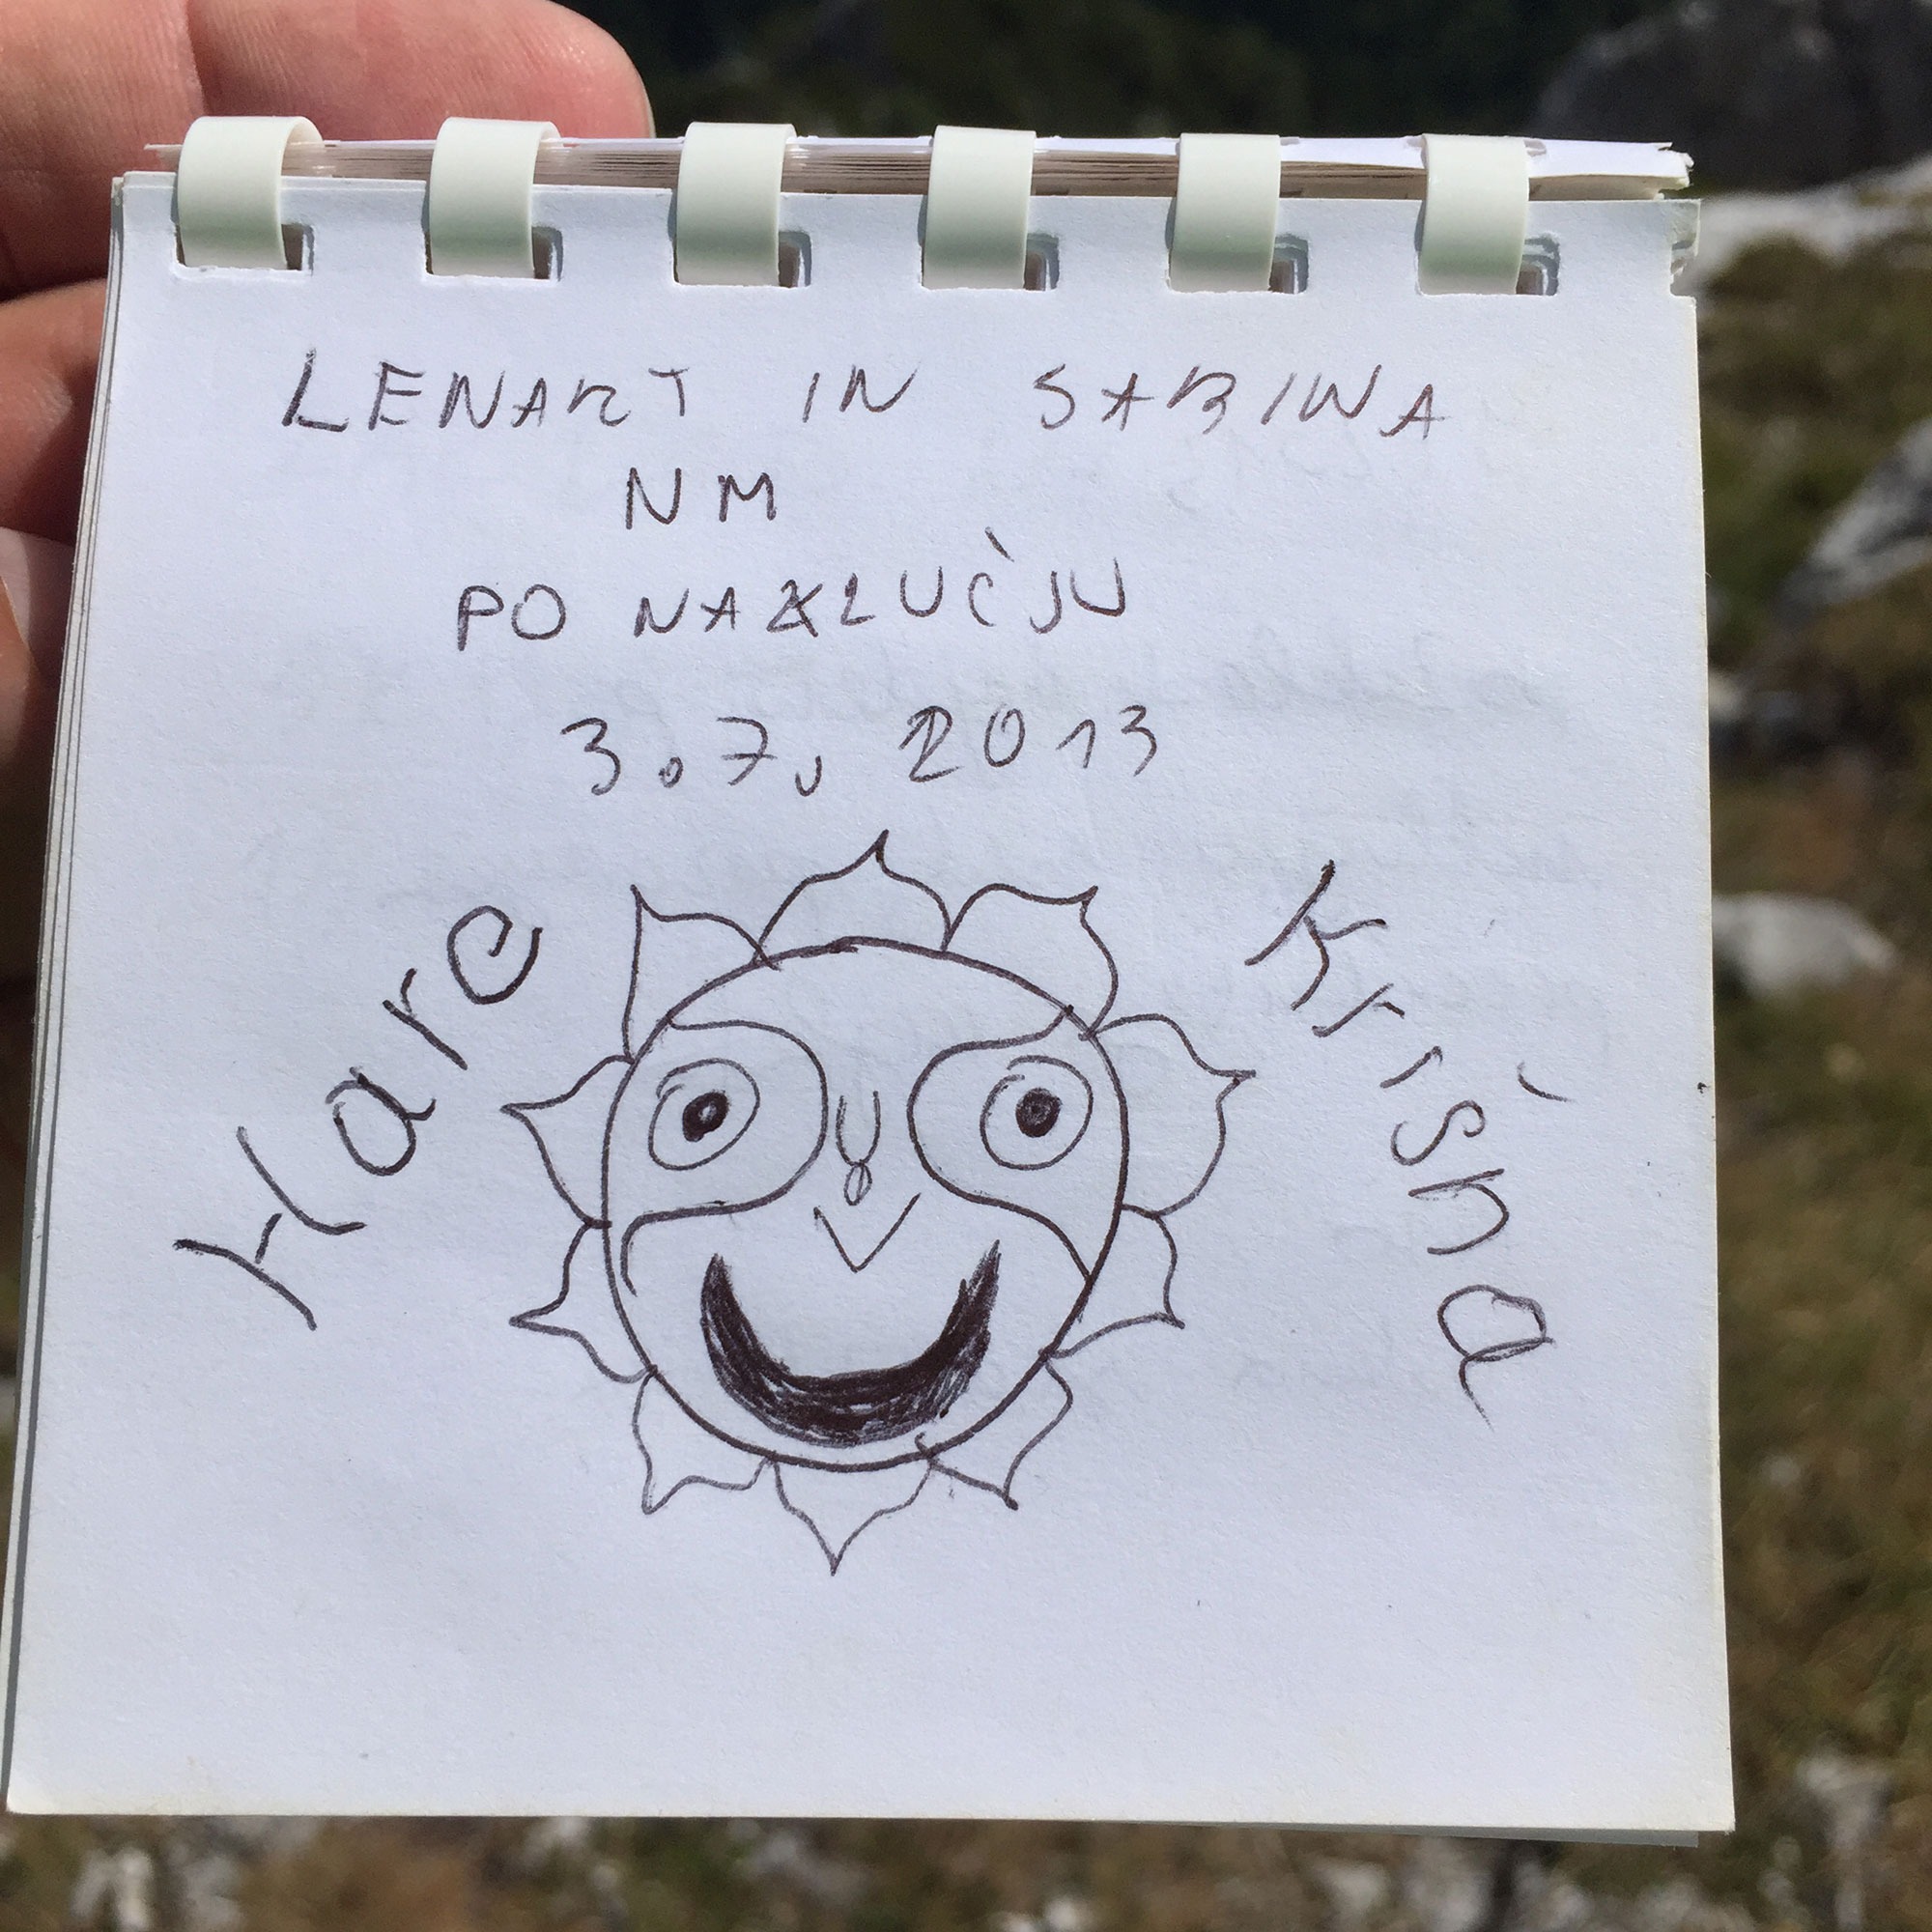 LENART IN SABINA
NM
PO NAKLUČJU
3.7. 2013
Hare Krišna